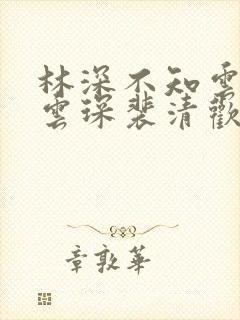 林深不知雲
雲琛裴清歡
章敦華